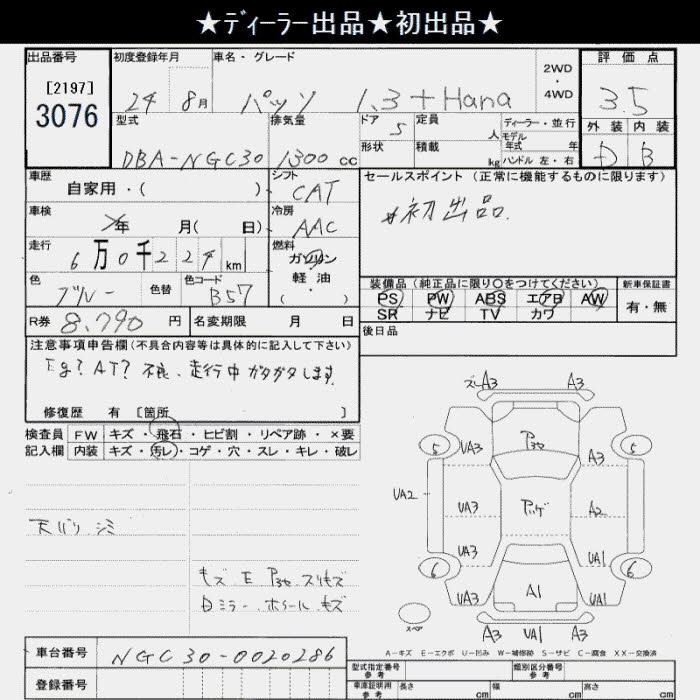 ★ディーラー出品★初出品★
出品番号 初度登録年月 車名・グレード 2WD・4WD 評価点
[2197]
3076
24 8月 パッソ 1.3 +Hana 3.5
型式 排気量 ドア 定員 人 ディーラー・並行 外装 内装
DBA-NGC30 1300cc 5 モデル年式 年 D B
形状 積載 kg ハンドル 左・右
車歴 シフト セールスポイント (正常に機能するものに限ります)
自家用・( ) CAT
車検 年 月( 日) 冷房 AAC #初出品.
走行 6万0千224km 燃料 ガソリン・軽油・( )
色 ブルー 色替 色コード B57
装備品(純正品に限り○をつけてください) 新車保証書
PS PW ABS エアB AW 有・無
SR ナビ TV カワ
R券 8,790円 名変期限 月 日 後日品
注意事項申告欄(不具合内容等は具体的に記入して下さい)
Eg? AT? 不良、走行中ガタガタします。
修復歴 有 [箇所 ]
検査員 FW キズ・飛石・ヒビ割・リペア跡・×要
記入欄 内装 キズ・汚レ・コゲ・穴・スレ・キレ・破レ
天バリ シミ
キズ E スリキズ
Dミラー ホイール キズ
ズレA3 A3
5 UA3 A3 5
UA2 UA3 A2
UA3 UA1
6 UA3 A1 UA1 6
スペア A3 UA3 A3
A-キズ E-エクボ U-凹み W-補修跡 S-サビ C-腐食 XX-交換済
車台番号 NGC30-0020286
型式指定番号 参考 類別区分番号 参考
登録番号 車庫証明用 参考 長さ cm 幅 cm 高さ cm